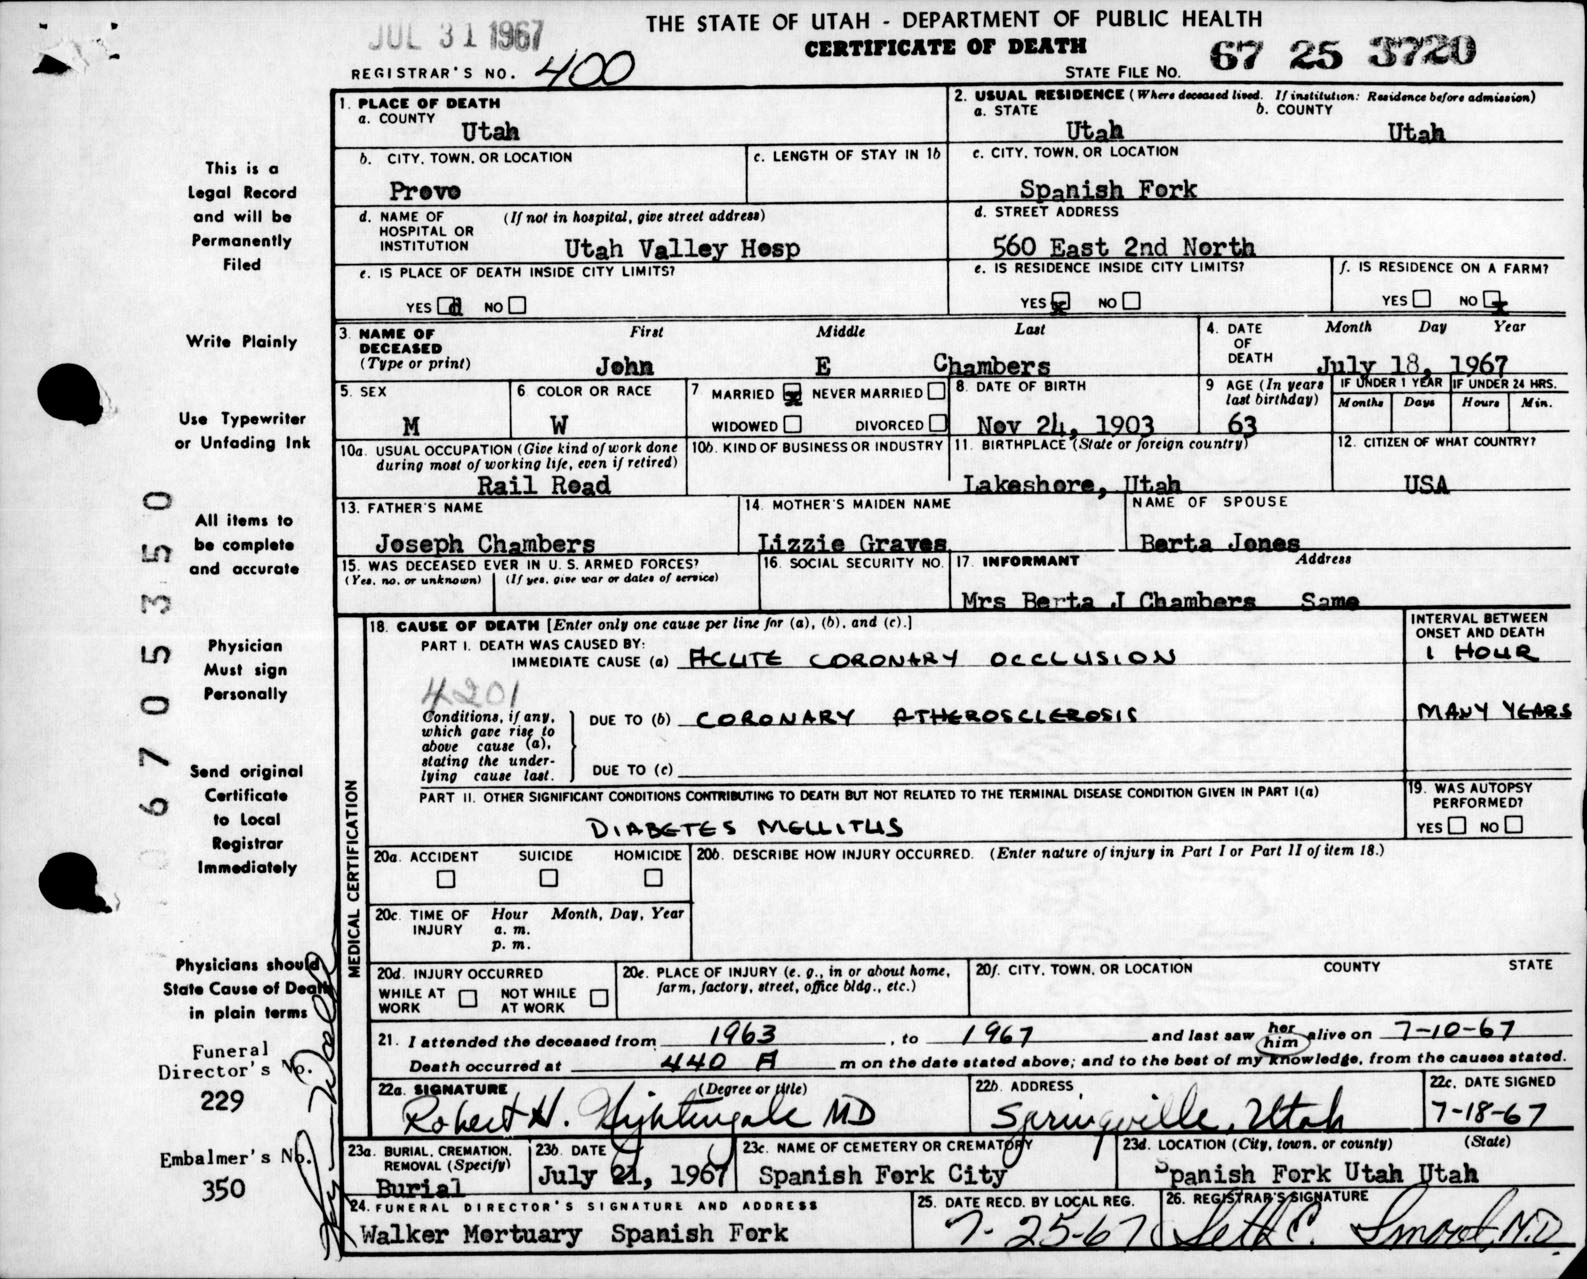 JUL 31 1967
THE STATE OF UTAH - DEPARTMENT OF PUBLIC HEALTH
CERTIFICATE OF DEATH
REGISTRAR'S NO. 400
STATE FILE NO. 67 25 3720
This is a
Legal Record
and will be
Permanently
Filed
Write Plainly
Use Typewriter
or Unfading Ink
All items to
be complete
and accurate
Physician
Must sign
Personally
Send original
Certificate
to Local
Registrar
Immediately
Physicians should
State Cause of Death
in plain terms
Funeral
Director's No.
229
Embalmer's No.
350
6705350
1. PLACE OF DEATH
a. COUNTY
Utah
2. USUAL RESIDENCE (Where deceased lived. If institution: Residence before admission)
a. STATE b. COUNTY
Utah Utah
b. CITY, TOWN, OR LOCATION
Provo
c. LENGTH OF STAY IN 1b
c. CITY, TOWN, OR LOCATION
Spanish Fork
d. NAME OF (If not in hospital, give street address)
HOSPITAL OR
INSTITUTION Utah Valley Hosp
d. STREET ADDRESS
560 East 2nd North
e. IS PLACE OF DEATH INSIDE CITY LIMITS?
YES d NO
e. IS RESIDENCE INSIDE CITY LIMITS?
YES x NO
f. IS RESIDENCE ON A FARM?
YES NO x
3. NAME OF First Middle Last
DECEASED
(Type or print) John E Chambers
4. DATE Month Day Year
OF
DEATH July 18, 1967
5. SEX
M
6. COLOR OR RACE
W
7 MARRIED x NEVER MARRIED
WIDOWED DIVORCED
8. DATE OF BIRTH
Nov 24, 1903
9 AGE (In years
last birthday)
63
IF UNDER 1 YEAR IF UNDER 24 HRS.
Months Days Hours Min.
10a. USUAL OCCUPATION (Give kind of work done
during most of working life, even if retired)
Rail Road
10b. KIND OF BUSINESS OR INDUSTRY
11. BIRTHPLACE (State or foreign country)
Lakeshore, Utah
12. CITIZEN OF WHAT COUNTRY?
USA
13. FATHER'S NAME
Joseph Chambers
14. MOTHER'S MAIDEN NAME
Lizzie Graves
NAME OF SPOUSE
Berta Jones
15. WAS DECEASED EVER IN U. S. ARMED FORCES?
(Yes, no, or unknown) (If yes, give war or dates of service)
16. SOCIAL SECURITY NO.
17. INFORMANT Address
Mrs Berta J Chambers Same
MEDICAL CERTIFICATION
18. CAUSE OF DEATH [Enter only one cause per line for (a), (b), and (c).]
INTERVAL BETWEEN
ONSET AND DEATH
PART I. DEATH WAS CAUSED BY:
IMMEDIATE CAUSE (a) ACUTE CORONARY OCCLUSION
1 HOUR
4201
Conditions, if any,
which gave rise to
above cause (a),
stating the under-
lying cause last.
DUE TO (b) CORONARY ATHEROSCLEROSIS
MANY YEARS
DUE TO (c)
PART II. OTHER SIGNIFICANT CONDITIONS CONTRIBUTING TO DEATH BUT NOT RELATED TO THE TERMINAL DISEASE CONDITION GIVEN IN PART I(a)
DIABETES MELLITUS
19. WAS AUTOPSY
PERFORMED?
YES NO
20a. ACCIDENT SUICIDE HOMICIDE
20b. DESCRIBE HOW INJURY OCCURRED. (Enter nature of injury in Part I or Part II of item 18.)
20c. TIME OF Hour Month, Day, Year
INJURY a. m.
p. m.
20d. INJURY OCCURRED
WHILE AT NOT WHILE
WORK AT WORK
20e. PLACE OF INJURY (e. g., in or about home,
farm, factory, street, office bldg., etc.)
20f. CITY, TOWN, OR LOCATION COUNTY STATE
21. I attended the deceased from 1963, to 1967 and last saw her him alive on 7-10-67
Death occurred at 440 A m on the date stated above; and to the best of my knowledge, from the causes stated.
22a. SIGNATURE (Degree or title)
Robert H. Nightingale MD
22b. ADDRESS
Springville, Utah
22c. DATE SIGNED
7-18-67
23a. BURIAL, CREMATION,
REMOVAL (Specify)
Burial
23b. DATE
July 21, 1967
23c. NAME OF CEMETERY OR CREMATORY
Spanish Fork City
23d. LOCATION (City, town, or county) (State)
Spanish Fork Utah Utah
24. FUNERAL DIRECTOR'S SIGNATURE AND ADDRESS
Walker Mortuary Spanish Fork
25. DATE RECD. BY LOCAL REG.
7-25-67
26. REGISTRAR'S SIGNATURE
Seth E. Smoot, M.D.